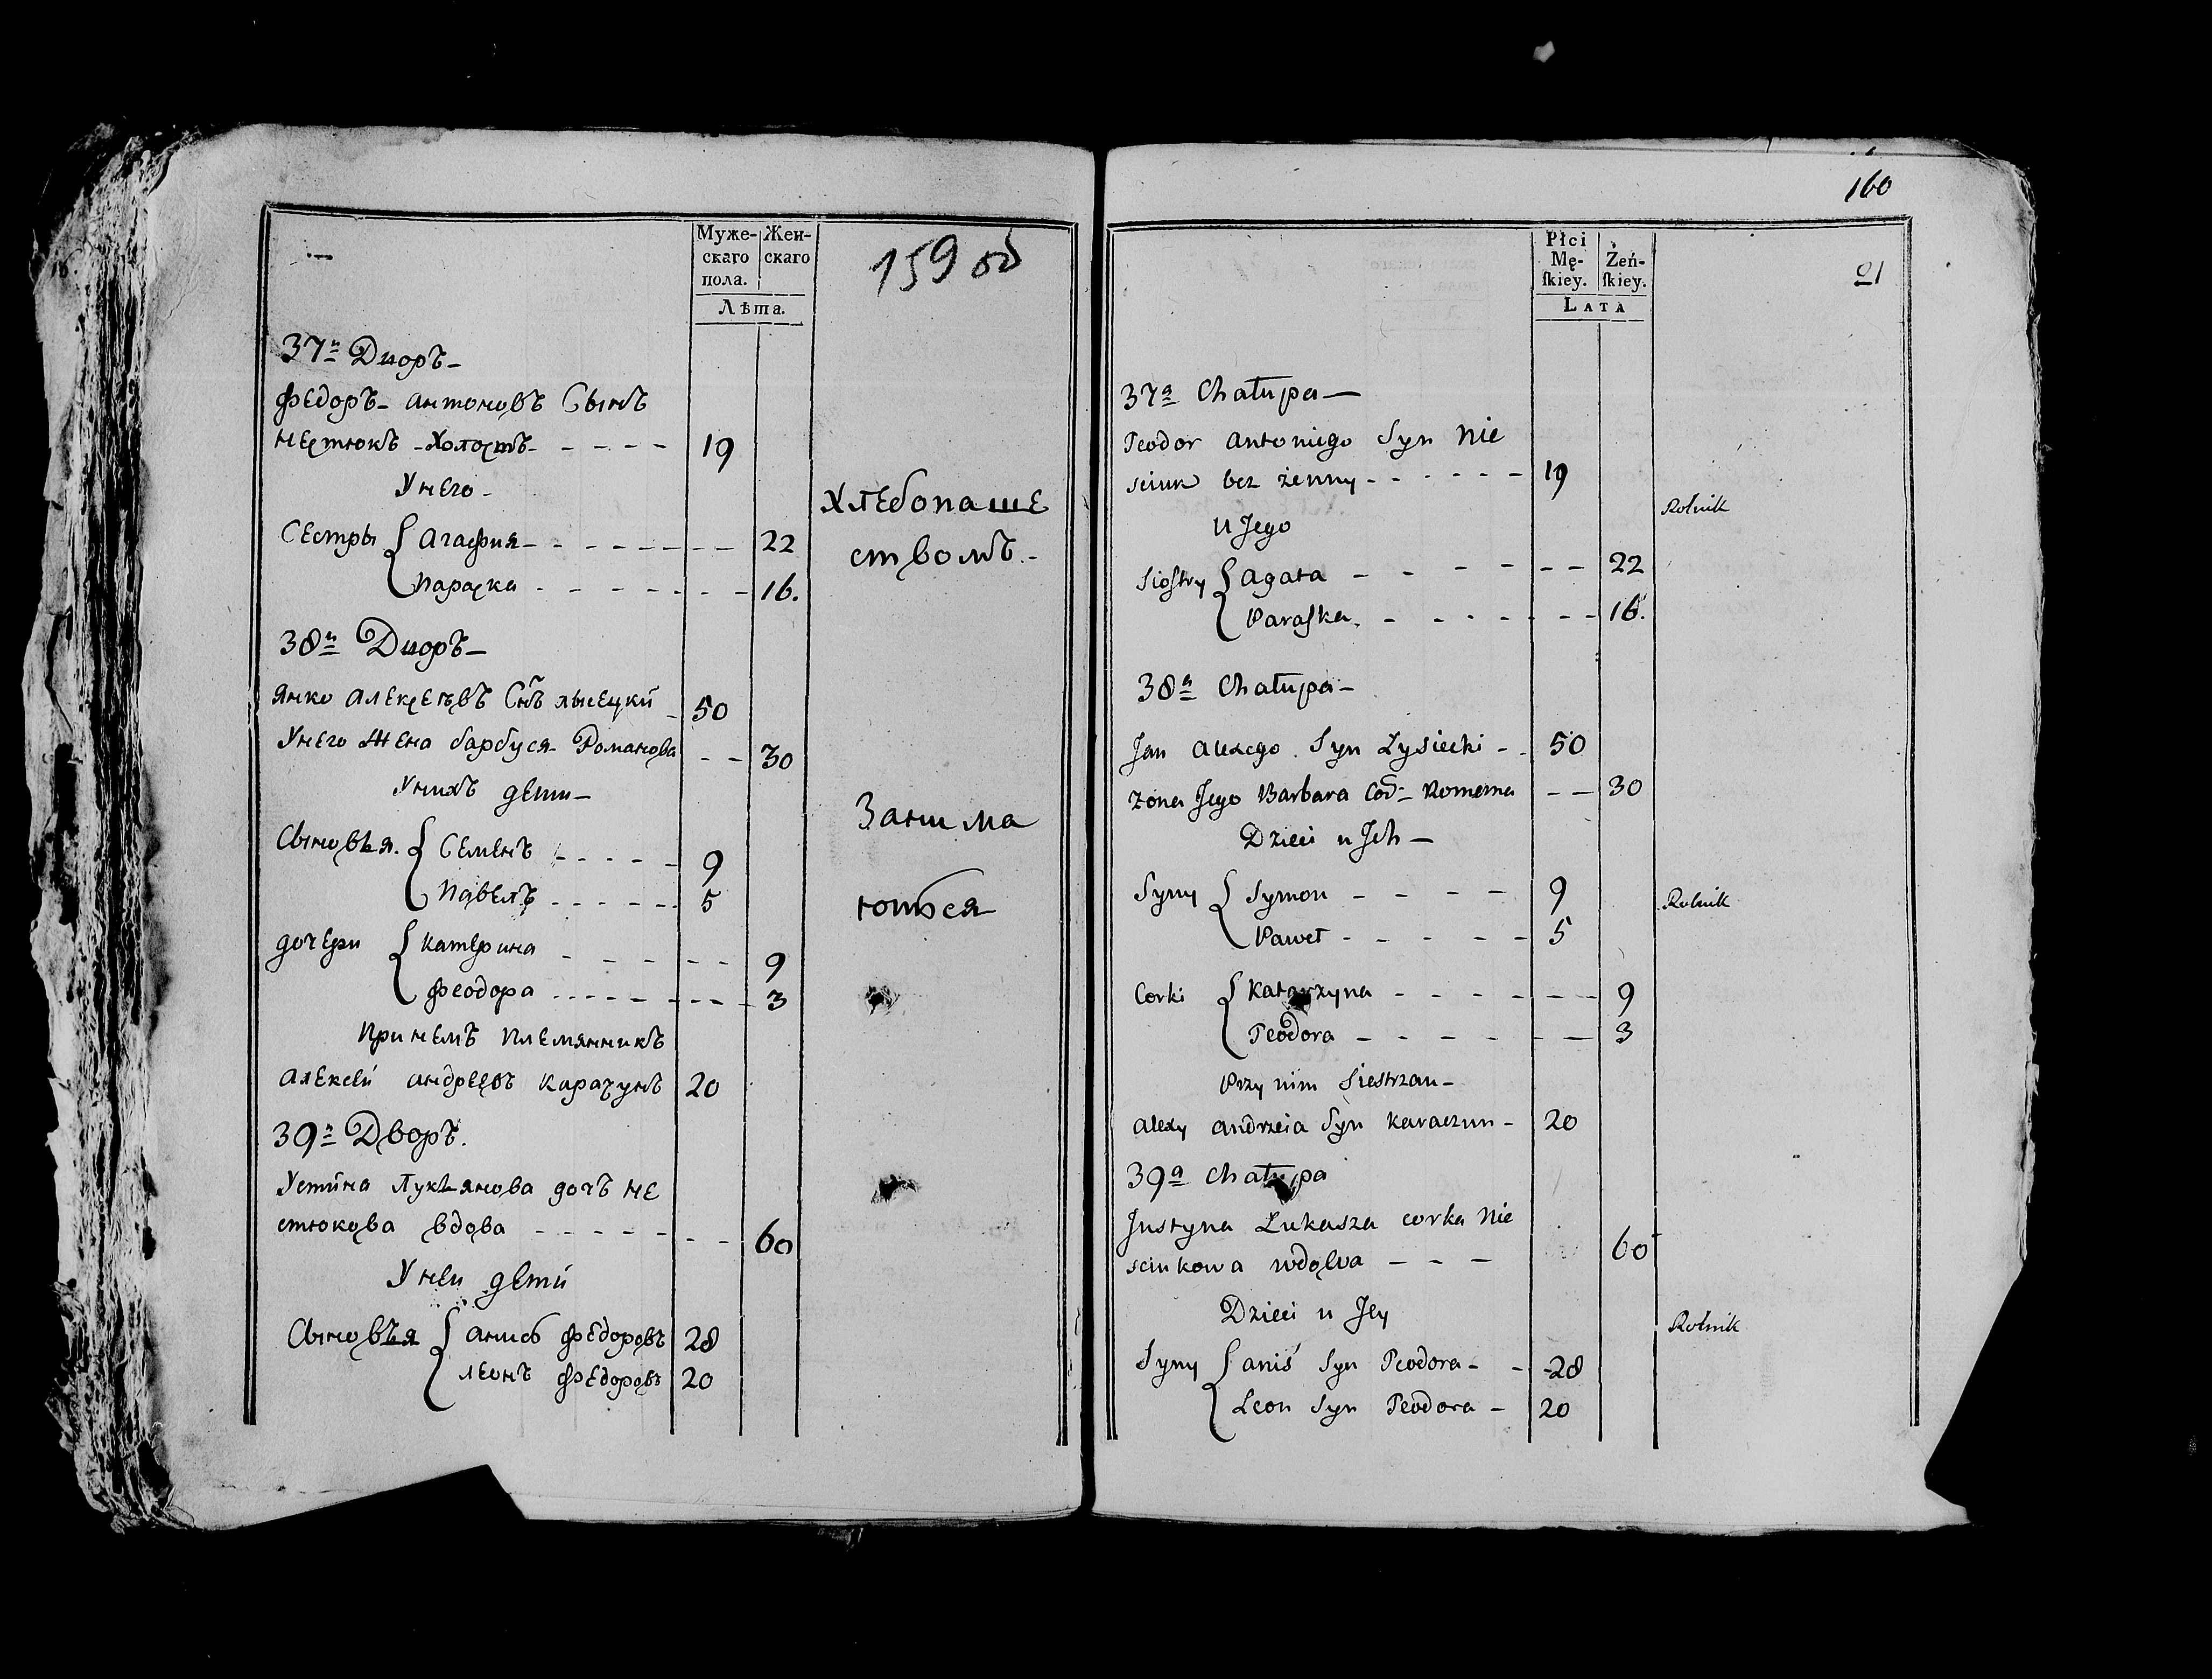 Муже-
скаго
пола.
Жен-
скаго
Лѣта.
159 об
37й Дворъ
Федоръ Антоновъ Сынъ
Нестюкъ Холостъ - - - - 19
У него
Сестры { Агафия - - - - - - 22
Параска - - - - - - 16.
Хлебопаше
ством.
38й Дворъ
Янко Алексеевъ Снъ Лысецкий - 50
У него Жена барбуся Романова - - 30
У нихъ дети
Сыновья. { Семенъ - - - - - 9
Павелъ - - - - - - 5
дочери { Катерина - - - - - - 9
Феодора - - - - - - 3
Занима
ются
При немъ племянникъ
Алексей андреевъ Карачунъ 20
39й Дворъ.
Устина Лукьянова дочъ Не
стюкова вдова - - - - - - - 60
У ней дети
Сыновья { анисъ федоровъ 28
леонъ федоровъ 20
160
Płci
Mę-
ſkiey.
Żeń-
ſkiey.
LATA
21
37a Chałupa
Teodor Antoniego Syn Nie
sciuk bez żenny - - - - - - 19
Rolnik
u Jego
Siostry { Agata - - - - - - 22
Paraska - - - - - - - 16.
38a Chałupa
Jan Alexego Syn Łysiecki - - 50
Zona Jego Barbara Cod- Romana - - 30
Dzieci u Jch
Syny { Symon - - - - 9
Paweł - - - - - 5
Rolnik
Corki { Katarzyna - - - - - - 9
Teodora - - - - - - 3
Przy nim Siestrzan
Alexy Andrzeia Syn Karaczun - 20
39a Chałupa
Justyna Łukasza corka Nie
sciukowa wdowa - - - 60
Dzieci u Jey
Rolnik
Syny { Aniś Syn Teodora - - 28
Leon Syn Teodora - 20